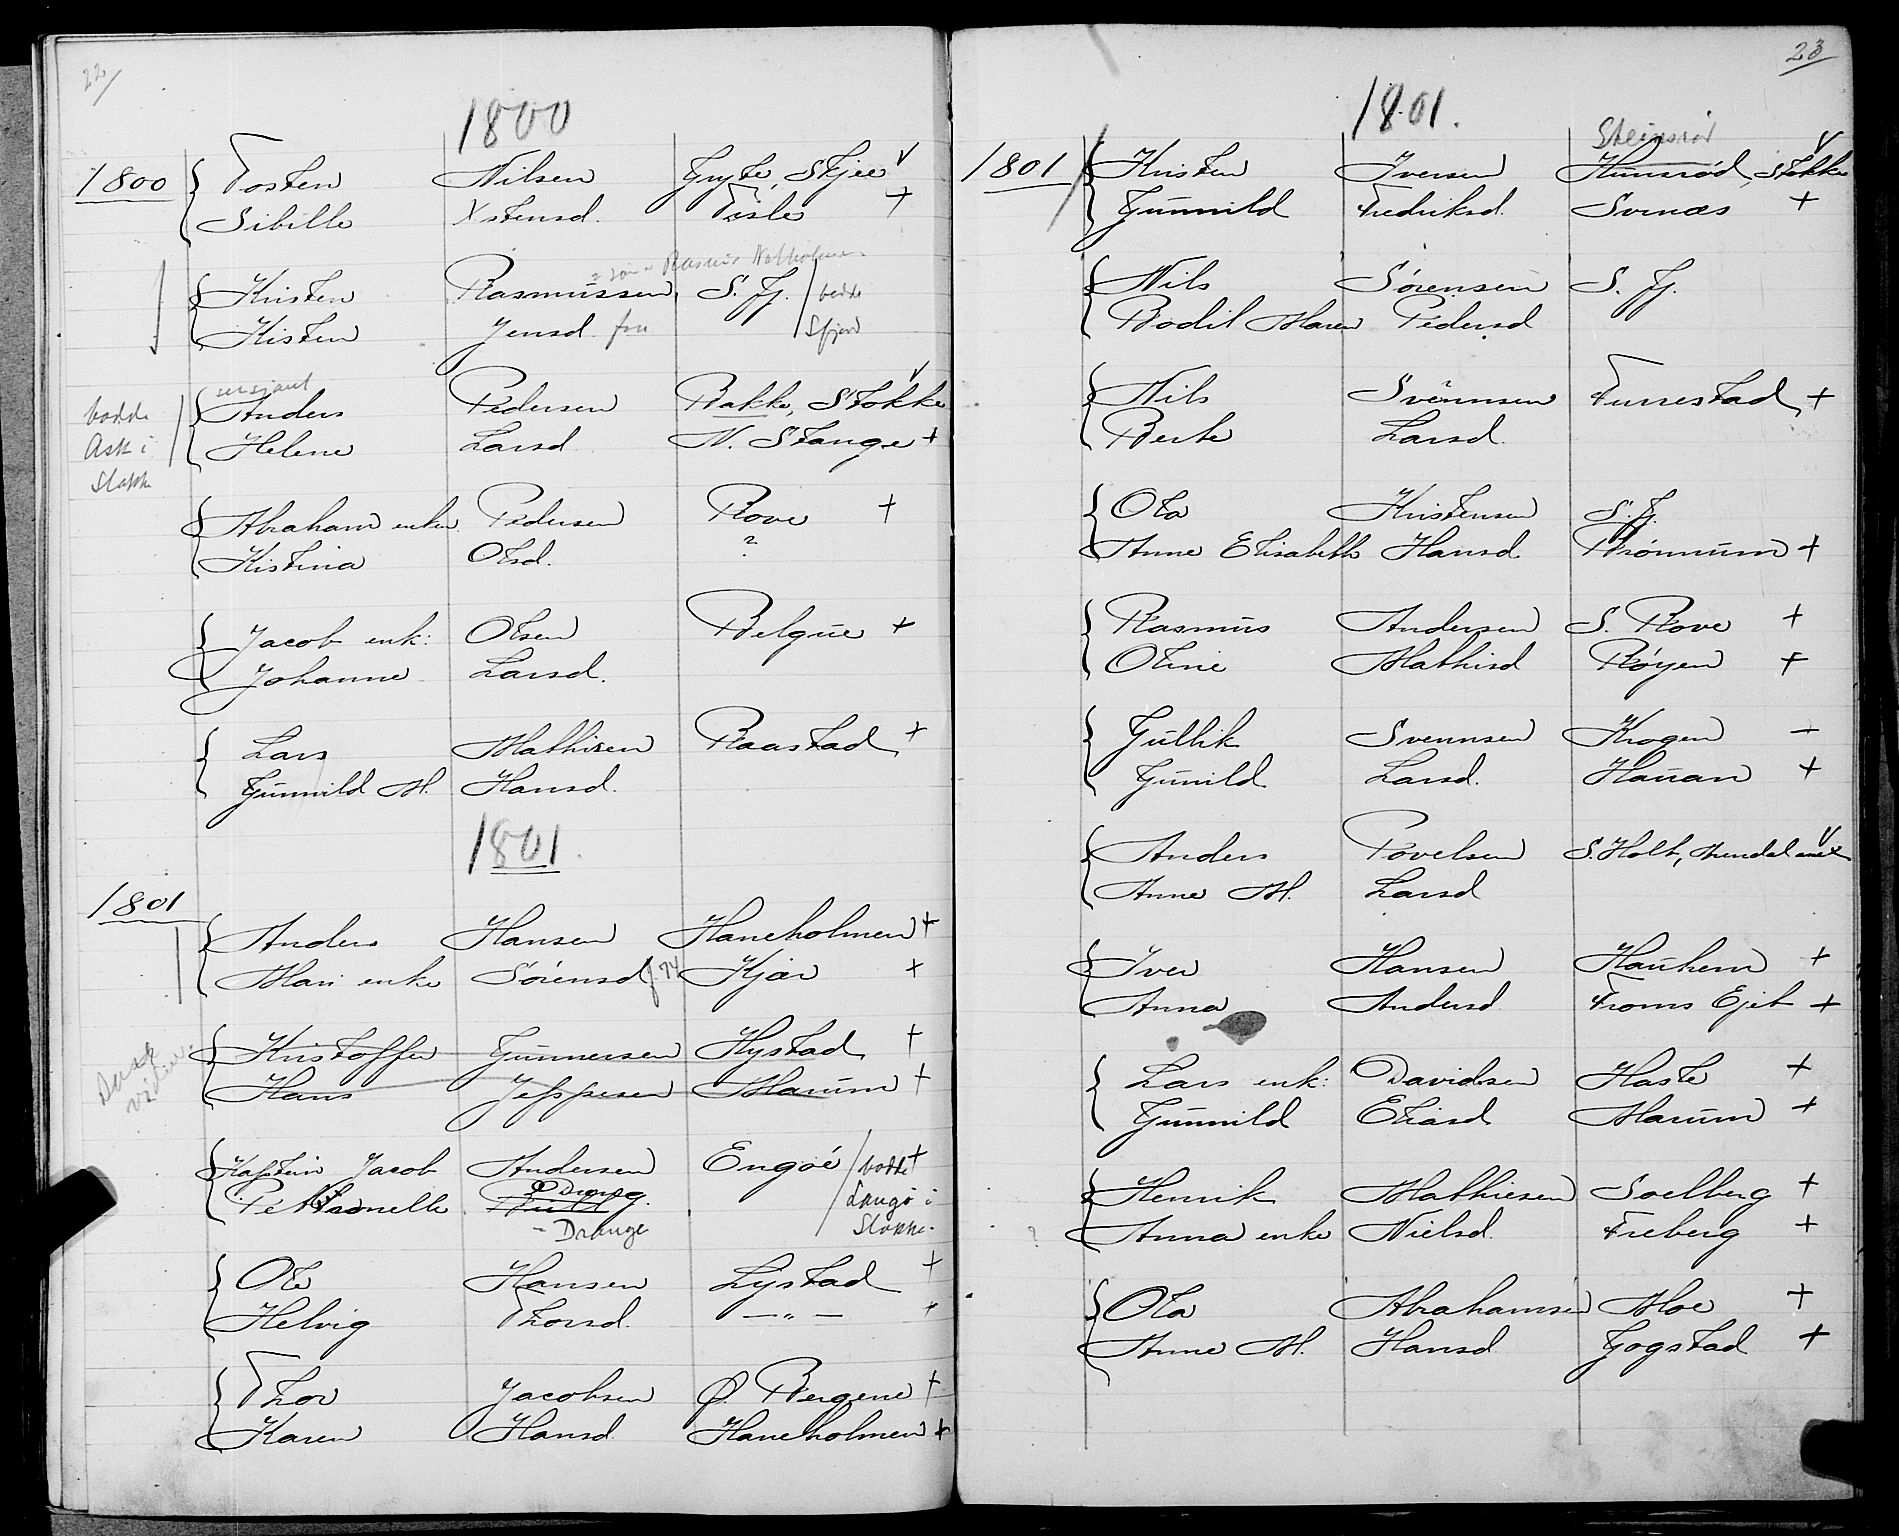 22
1800
1800 Tosten Nilsen Gryte, Skjee V
Sibille Xstensd. Tisle +
Kristen Rasmussen, S. Fj. bodde
Kisten Jensd. fra Sfjord
sersjant
bodde Anders Pedersen Bakke, Stokke V
Ask i Helene Larsd N. Stange +
Stokke
Abraham enkem. Pedersen Rove +
Kistina Olsd. ?
Jacob enk: Olsen Belgue +
Johanne Larsd.
Lars Mathisen Raastad +
Gunnild M. Hansd.
1801
1801
Anders Hansen Haneholmen +
Mari enke Sörensd f 74 Kjær +
Kristoffer Gunnersen Hystad +
Hans Jespesen Marum +
Kaptein Jacob Andersen Engöe bodde +
Petronelle Langö i
- Drange Stokke.
Ole Hansen Lystad +
Helvig Thorsd. — " — "
Thor Jacobsen Ø. Bergene +
Karen Hansd Haneholmen +
23
1801.
Steinsrød
1801 Kristen Iversen Hunsrød, Stokke V
Gunnild Fredriksd. Svenæs +
Nils Sørensen S. Fj.
Bodil Maren Pedersd
Nils Svennsen Furrestad +
Berte Larsd.
Ola Kristensen S. Fj.
Anne Elisabeth Hansd. Brønnum +
Rasmus Andersen S. Rove +
Oline Mathisd Røyen +
Gullik Svennsen Krogen —
Gunild Larsd. Hauan +
Anders Povelsen S. Holt, Arendal amt V
Anne M. Larsd
Iver Hansen Haukem +
Anna Andersd Froms Ejet +
Lars enk: Davidsen Haste +
Gunnild Eliasd Marum +
Henrik Mathiesen Soelberg +
? Anna enke Nielsd. Freberg +
Ola Abrahamsen Moe +
Anne M. Hansd Gogstad +